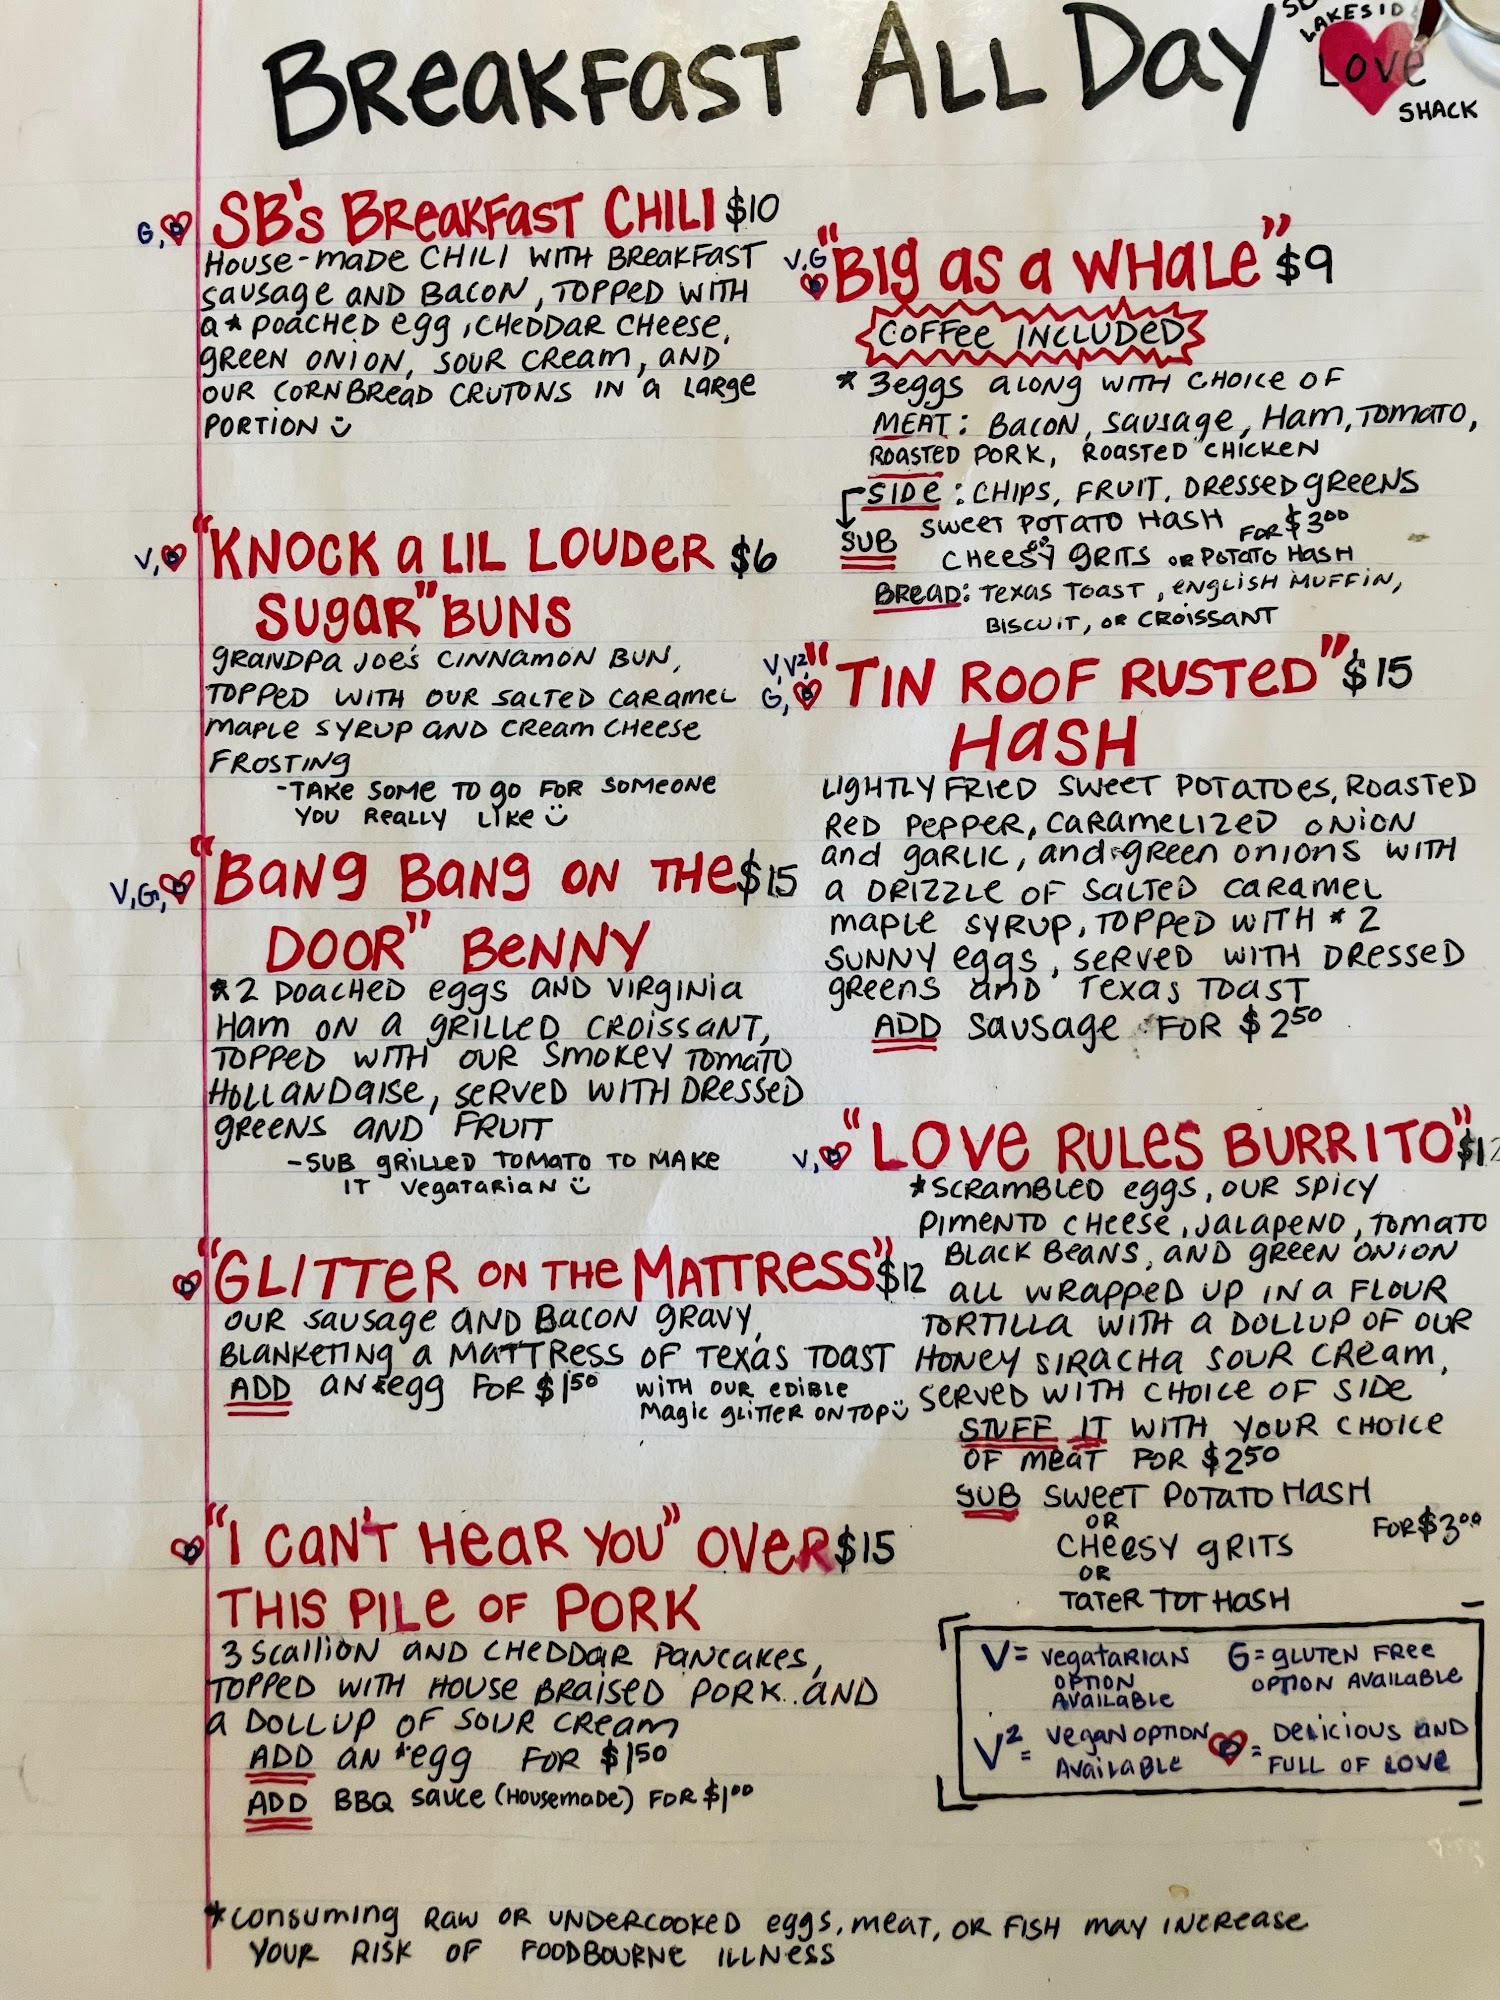 Breakfast All Day
LAKESIDE
Love
SHACK
G, SB's Breakfast CHILI $10
House-made CHILI with Breakfast
sausage and Bacon, topped with
a * poached egg, cheddar cheese,
green onion, sour cream, and
our cornbread crutons in a large
portion
V, "Knock a lil louder $6
Sugar" Buns
Grandpa Joe's cinnamon bun,
topped with our salted caramel
maple syrup and cream cheese
frosting
-Take some to go for someone
you really like
V,G, "Bang Bang on the $15
Door" Benny
*2 poached eggs and Virginia
Ham on a grilled croissant,
topped with our smokey tomato
hollandaise, served with dressed
greens and fruit
-Sub grilled tomato to make
it vegatarian
"Glitter on the Mattress" $12
Our sausage and bacon gravy,
blanketing a mattress of Texas toast
ADD an *egg for $1.50 with our edible
magic glitter on top
"I can't hear you" over $15
this pile of pork
3 scallion and cheddar pancakes,
topped with house braised pork and
a dollup of sour cream
ADD an *egg for $1.50
ADD BBQ sauce (housemade) for $1.00
V,G "Big as a Whale" $9
Coffee Included
* 3 eggs along with choice of
Meat: Bacon, sausage, Ham, Tomato,
Roasted pork, roasted chicken
Side: chips, fruit, dressed greens
Sub sweet potato hash for $3.00
cheesy grits or potato hash
Bread: Texas toast, english muffin,
biscuit, or croissant
V, V², G, "Tin Roof Rusted" $15
Hash
Lightly fried sweet potatoes, roasted
red pepper, caramelized onion
and garlic, and green onions with
a drizzle of salted caramel
maple syrup, topped with * 2
sunny eggs, served with dressed
greens and Texas toast
ADD sausage for $2.50
V, "Love Rules Burrito" $12
*Scrambled eggs, our spicy
pimento cheese, jalapeno, tomato
black beans, and green onion
all wrapped up in a flour
tortilla with a dollup of our
honey siracha sour cream,
served with choice of side
Stuff it with your choice
of meat for $2.50
Sub sweet potato hash
or
cheesy grits for $3.00
or
tater tot hash
V = vegatarian option available
G = gluten free option available
V² = vegan option available
= Delicious and full of love
*consuming raw or undercooked eggs, meat, or fish may increase
your risk of foodbourne illness